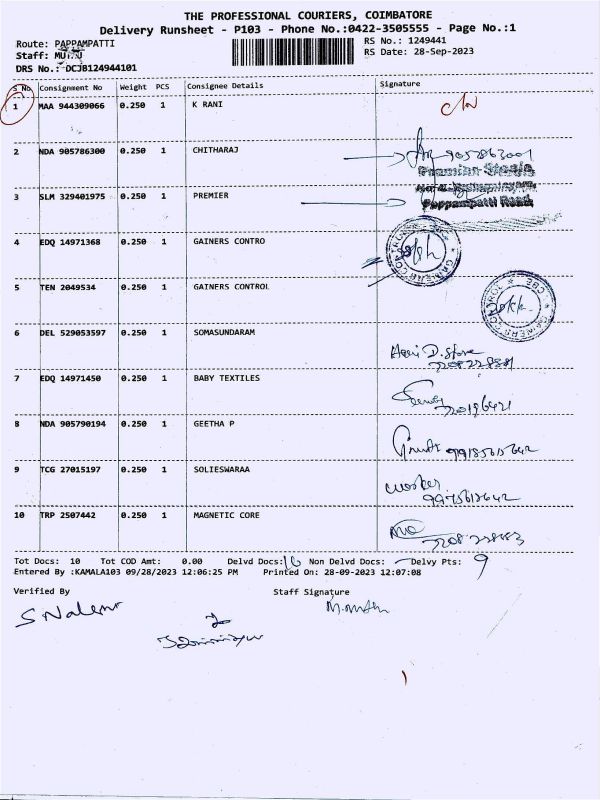 THE PROFESSIONAL COURIERS, COIMBATORE
Delivery Runsheet - P103 - Phone No.:0422-3505555 - Page No.:1
Route: PAPPAMPATTI
RS No.: 1249441
Staff:
RS Date: 28-Sep-2023
DRS No.: DCJB124944101
S No Consignment No Weight PCS Consignee Details Signature
1 MAA 944309066 0.250 1 K RANI
2 NDA 905786300 0.250 1 CHITHARAJ
3 SLM 329401975 0.250 1 PREMIER
Pappampatti Road
4 EDQ 14971368 0.250 1 GAINERS CONTRO
5 TEN 2049534 0.250 1 GAINERS CONTROL
6 DEL 529053597 0.250 1 SOMASUNDARAM
7 EDQ 14971450 0.250 1 BABY TEXTILES
8 NDA 905790194 0.250 1 GEETHA P
9 TCG 27015197 0.250 1 SOLIESWARAA
worker
10 TRP 2507442 0.250 1 MAGNETIC CORE
Tot Docs: 10 Tot COD Amt: 0.00 Delvd Docs: Non Delvd Docs: Delvy Pts: 9
Entered By :KAMALA103 09/28/2023 12:06:25 PM Printed On: 28-09-2023 12:07:08
Verified By Staff Signature